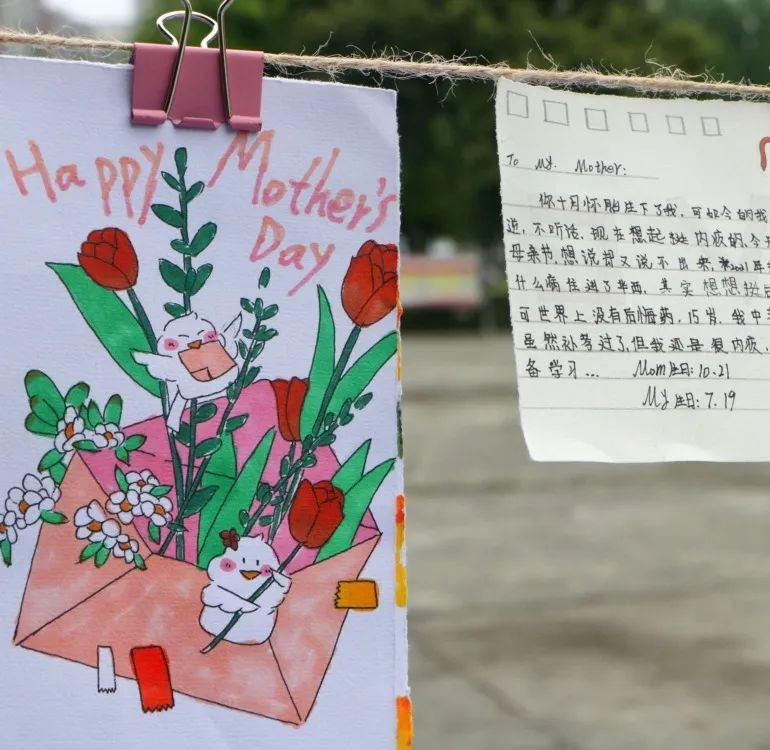 Happy Mother's
Day
To My Mother:
你十月怀胎生下了我,可如今的我
道,不听话.现在想起挺内疚的,今
母亲节,想说却又说不出来,2001
什么病住进了医院.其实想想挺后
可世界上没有后悔药,15岁,我中考
虽然补考过了,但我还是很内疚,
备学习... Mom生日:10.21
My生日:7.19